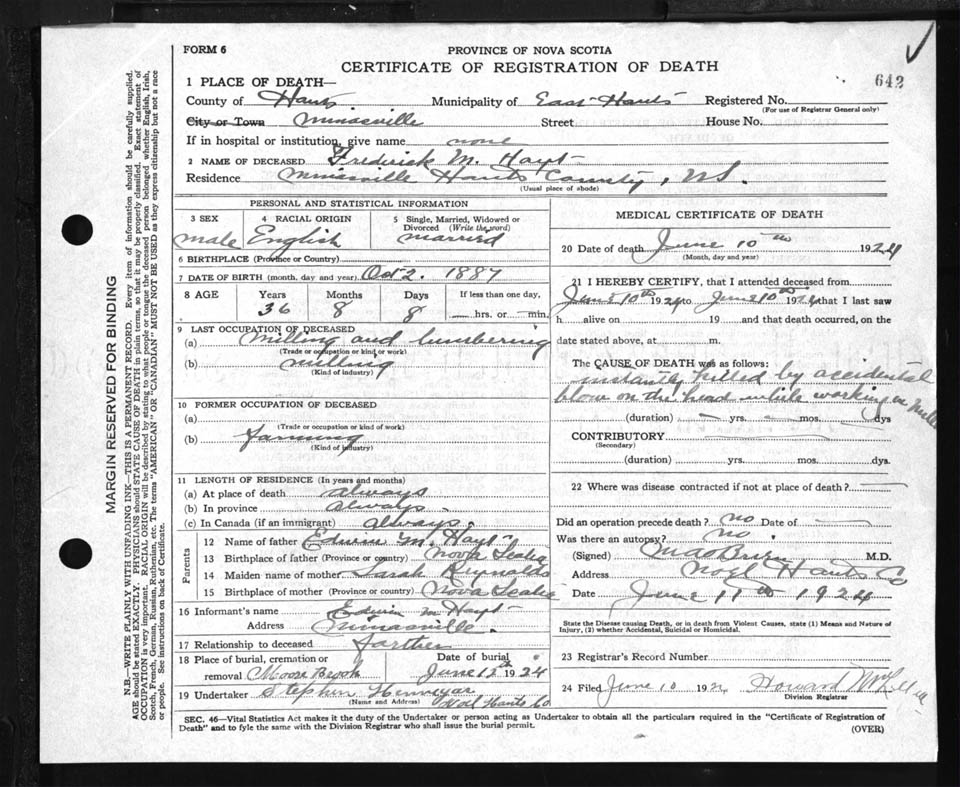 FORM 6
PROVINCE OF NOVA SCOTIA
CERTIFICATE OF REGISTRATION OF DEATH
642
1 PLACE OF DEATH—
County of Hants Municipality of East Hants Registered No.
(For use of Registrar General only)
City or Town Minasville Street House No.
If in hospital or institution, give name none
2 NAME OF DECEASED Frederick M. Hoyt
Residence Minasville Hants County, N.S.
(Usual place of abode)
PERSONAL AND STATISTICAL INFORMATION
3 SEX 4 RACIAL ORIGIN 5 Single, Married, Widowed or Divorced (Write the word)
male English married
6 BIRTHPLACE (Province or Country)
7 DATE OF BIRTH (month, day and year) Oct 2. 1887
8 AGE Years Months Days If less than one day,
36 8 8 hrs. or min.
9 LAST OCCUPATION OF DECEASED
(a) Milling and lumbering
(Trade or occupation or kind of work)
(b) milling
(Kind of industry)
10 FORMER OCCUPATION OF DECEASED
(a)
(Trade or occupation or kind of work)
(b) farming
(Kind of industry)
11 LENGTH OF RESIDENCE (In years and months)
(a) At place of death always
(b) In province always
(c) In Canada (if an immigrant) always
Parents
12 Name of father Edwin M. Hoyt
13 Birthplace of father (Province or country) Nova Scotia
14 Maiden name of mother Sarah Reynolds
15 Birthplace of mother (Province or country) Nova Scotia
16 Informant's name Edwin M Hoyt
Address Minasville.
17 Relationship to deceased farther
18 Place of burial, cremation or removal Moose Brook Date of burial June 12th 1924
19 Undertaker Stephen
(Name and Address) Noel Hants Co
MEDICAL CERTIFICATE OF DEATH
20 Date of death June 10th 1924
(Month, day and year)
21 I HEREBY CERTIFY, that I attended deceased from
June 10th 1924 to June 10th 1924 that I last saw
h alive on 19 and that death occurred, on the
date stated above, at m.
The CAUSE OF DEATH was as follows:
instantly killed by accidental
blow on the head while working in Mill
(duration) yrs. mos. dys
CONTRIBUTORY
(Secondary)
(duration) yrs. mos. dys.
22 Where was disease contracted if not at place of death?
Did an operation precede death? no Date of
Was there an autopsy? no.
(Signed) O'Brien M.D.
Address Noel Hants Co
Date June 11th 1924
State the Disease causing Death, or in death from Violent Causes, state (1) Means and Nature of Injury, (2) whether Accidental, Suicidal or Homicidal.
23 Registrar's Record Number
24 Filed June 10 192 Howard
Division Registrar
SEC. 46—Vital Statistics Act makes it the duty of the Undertaker or person acting as Undertaker to obtain all the particulars required in the "Certificate of Registration of
Death" and to fyle the same with the Division Registrar who shall issue the burial permit.
(OVER)
MARGIN RESERVED FOR BINDING
N.B.—WRITE PLAINLY WITH UNFADING INK—THIS IS A PERMANENT RECORD. Every item of information should be carefully supplied.
AGE should be stated EXACTLY. PHYSICIANS should STATE CAUSE OF DEATH in plain terms, so that it may be properly classified. Exact statement of
OCCUPATION is very important. RACIAL ORIGIN will be described by stating to what people or tongue the deceased person belonged whether English, Irish,
Scotch, French, German, Russian, Ruthenian, etc. The terms "AMERICAN" or "CANADIAN" MUST NOT BE USED as they express citizenship but not a race
or people. See instructions on back of Certificate.